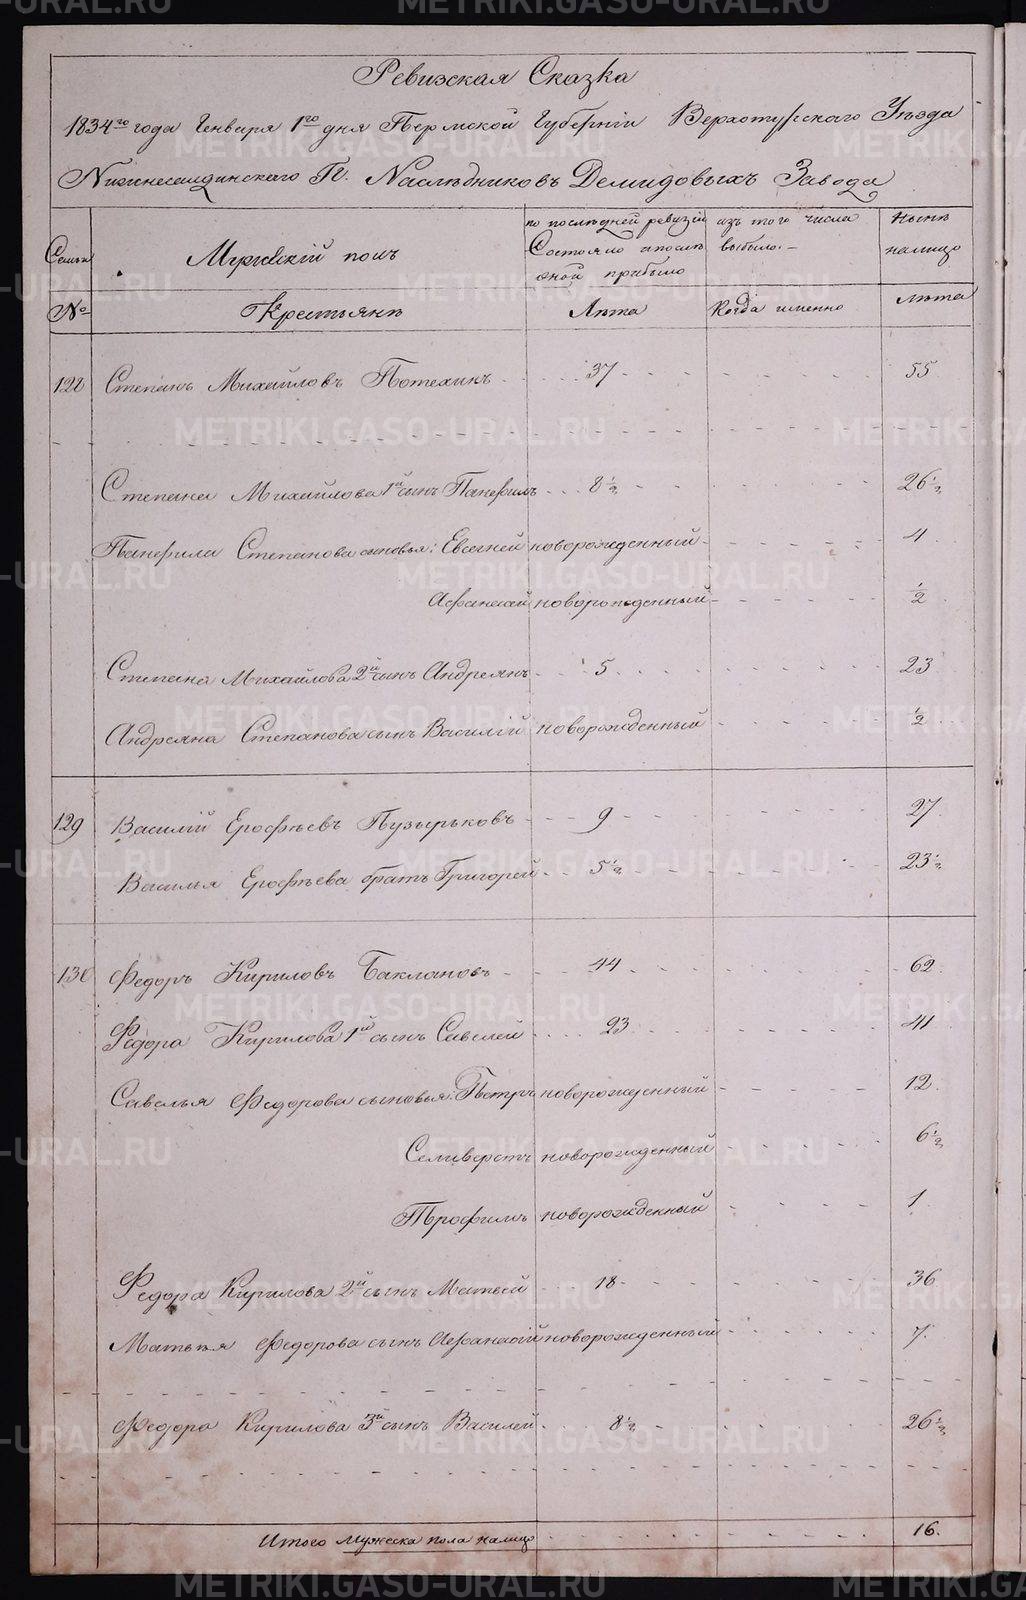 Ревизская Сказка
1834го года Генваря 1го дня Пермской Губерніи Верхотурскаго Уѣзда
Нижнесалдинскаго Гг. Наслѣдниковъ Демидовыхъ Завода
Семьи Мужескій полъ по послѣдней ревизіи Состояло и послѣ оной прибыло изъ того числа выбыло. Нынѣ налицо
№ Крестьянѣ Лѣта Когда именно Лѣта
128 Степанъ Михайловъ Потехинъ 37 55
Степана Михайлова 1й сынъ Панфилъ 8½ 26½
Панфила Степанова сыновья: Евсегней новорожденный 4
Афанасій новорожденный ½
Степана Михайлова 2й сынъ Андреянъ 5 23
Андреяна Степанова сынъ Василій новорожденный ½
129 Василій Ерофѣевъ Пузырьковъ 9 27
Василья Ерофѣева братъ Григорей 5½ 23½
130 Федоръ Кириловъ Баклановъ 44 62
Федора Кирилова 1й сынъ Савелей 23 41
Савелья Федорова сыновья: Петръ новорожденный 12
Селиверстъ новорожденный 6½
Трофимъ новорожденный 1
Федора Кирилова 2й сынъ Матвей 18 36
Матвья Федорова сынъ Афанасій новорожденный 7
Федора Кирилова 3й сынъ Василей 8½ 26½
Итого мужеска пола налицо 16.
METRIKI.GASO-URAL.RU